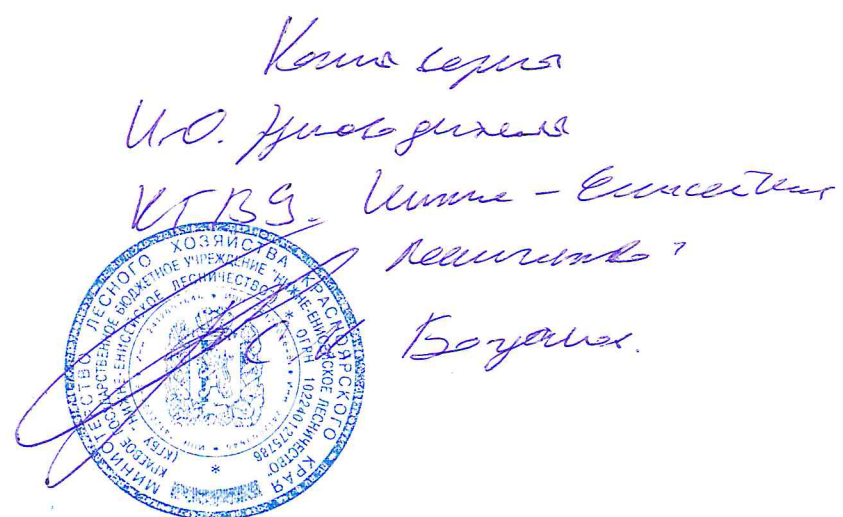 Копия верна
И.О. руководителя
КГБУ "Нижне-Енисейское
лесничество"
МИНИСТЕРСТВО ЛЕСНОГО ХОЗЯЙСТВА КРАСНОЯРСКОГО КРАЯ
КРАЕВОЕ ГОСУДАРСТВЕННОЕ БЮДЖЕТНОЕ УЧРЕЖДЕНИЕ "НИЖНЕ-ЕНИСЕЙСКОЕ ЛЕСНИЧЕСТВО"
(КГБУ "НИЖНЕ-ЕНИСЕЙСКОЕ ЛЕСНИЧЕСТВО") * ОГРН 1022401275786